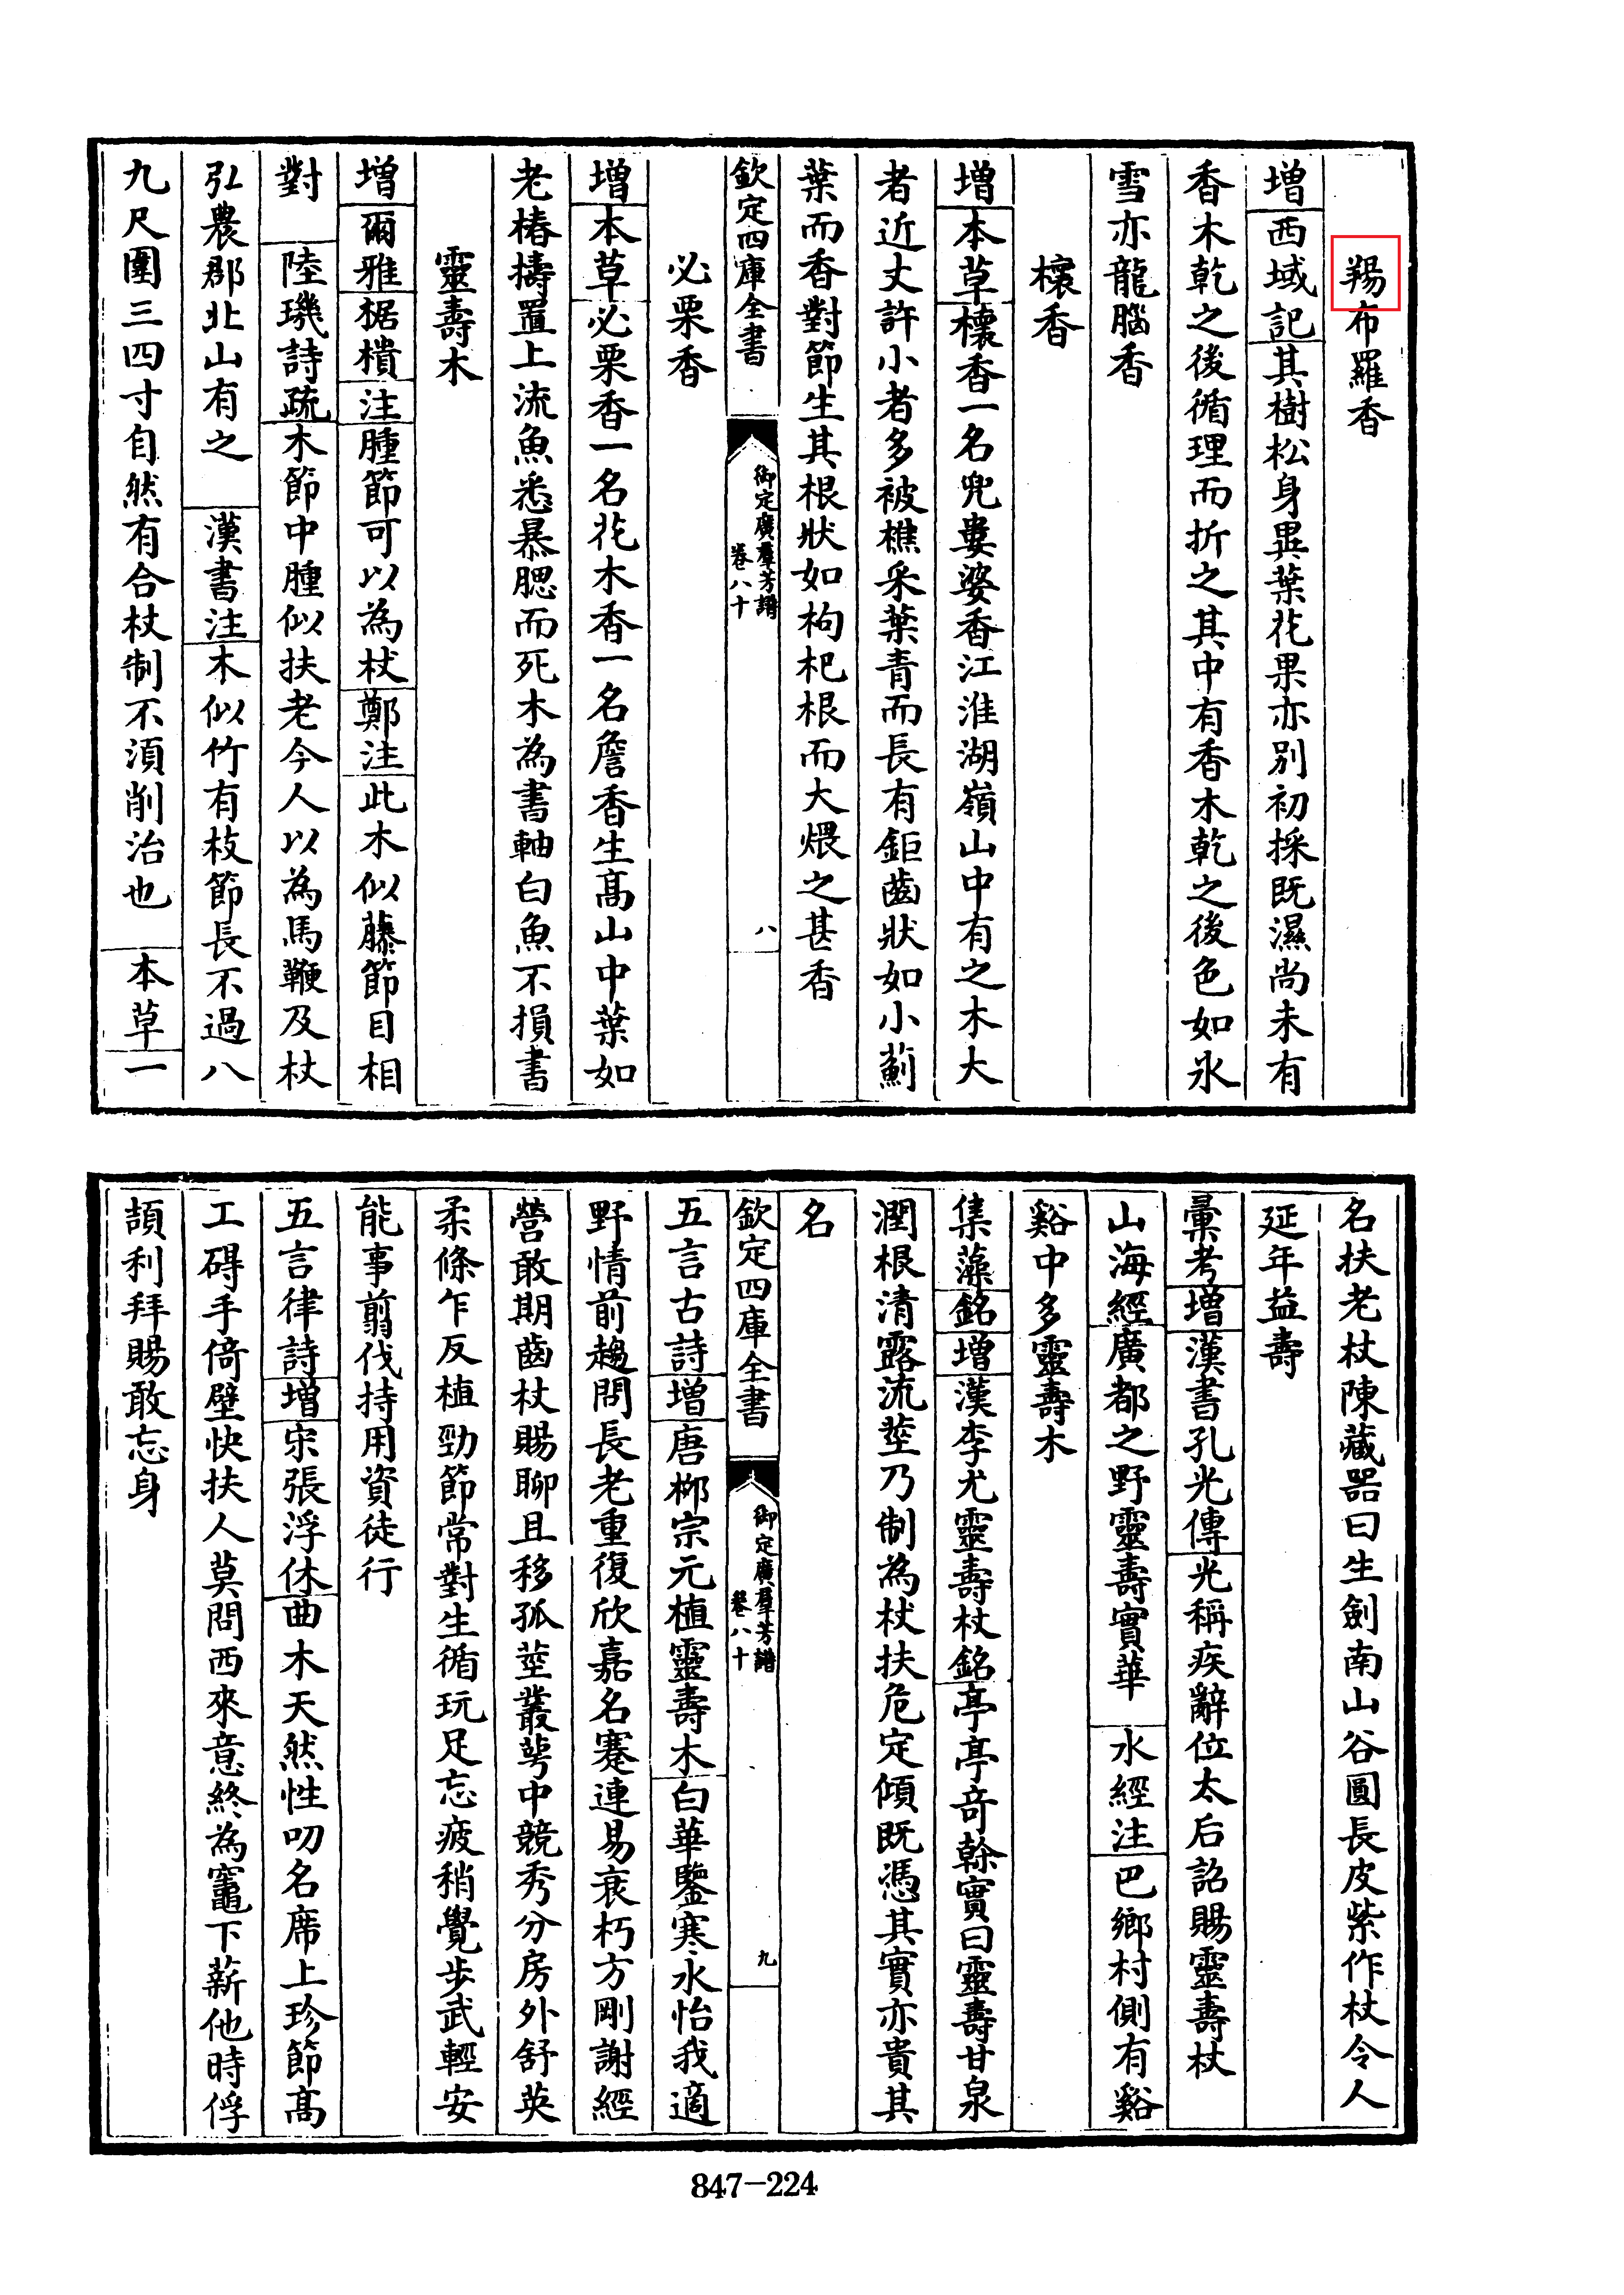 羯布羅香
增西域記其樹松身異葉花果亦别初採既濕尚未有
香木乾之後循理而折之其中有香木乾之後色如氷
雪亦龍腦香
櫰香
增本草櫰香一名兜婁婆香江淮湖嶺山中有之木大
者近丈許小者多被樵采葉青而長有鉅齒狀如小薊
葉而香對節生其根狀如枸杞根而大煨之甚香
欽定四庫全書
御定廣羣芳譜
卷八十
八
必栗香
增本草必栗香一名花木香一名詹香生髙山中葉如
老椿擣置上流魚悉暴腮而死木為書軸白魚不損書
靈壽木
增爾雅椐樻注腫節可以為杖鄭注此木似藤節目相
對 陸璣詩疏木節中腫似扶老今人以為馬鞭及杖
弘農郡北山有之 漢書注木似竹有枝節長不過八
九尺圍三四寸自然有合杖制不湏削治也 本草一
名扶老杖陳藏器曰生劍南山谷圓長皮紫作杖令人
延年益壽
彚考增漢書孔光傳光稱疾辭位太后詔賜靈壽杖
山海經廣都之野靈壽實華 水經注巴鄉村側有谿
谿中多靈壽木
集藻銘增漢李尤靈壽杖銘亭亭奇榦實曰靈壽甘泉
潤根清露流莖乃制為杖扶危定傾既憑其實亦貴其
名
欽定四庫全書
御定廣羣芳譜
卷八十
九
五言古詩增唐栁宗元植靈壽木白華鑒寒水怡我適
野情前趨問長老重復欣嘉名蹇連易衰朽方剛謝經
營敢期齒杖賜聊且移孤莖叢萼中競秀分房外舒英
柔條乍反植勁節常對生循玩足忘疲稍覺步武輕安
能事翦伐持用資徒行
五言律詩增宋張浮休曲木天然性叨名席上珍節髙
工碍手倚壁快扶人莫問西來意終為竈下薪他時俘
頡利拜賜敢忘身
847-224